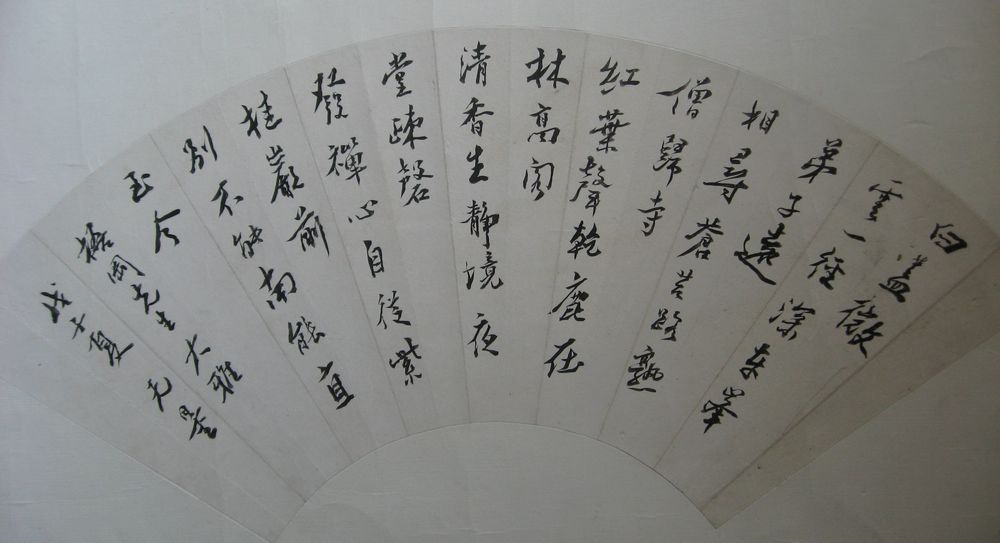 白蓋微
雲一徑深東峯
弟子遠
相尋蒼苔路熟
僧歸寺
紅葉聲乾鹿在
林高閣
清香生靜境夜
堂疎磬
發禪心自從紫
桂巖前
別不能南能直
至今
梧岡先生大雅
戊子夏